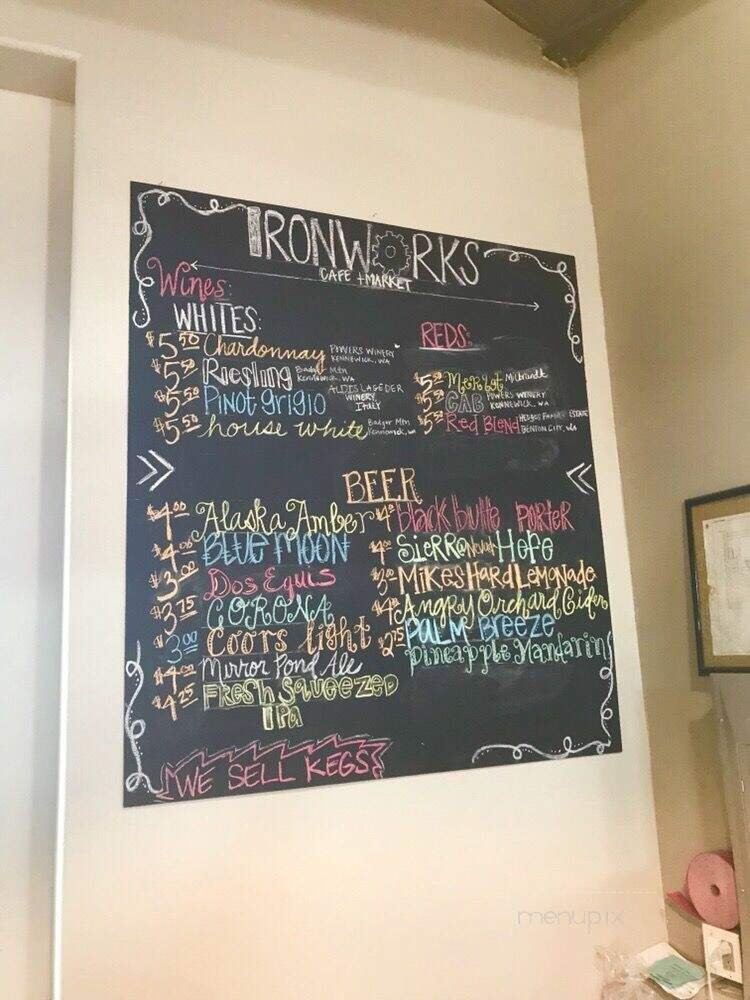 IRONWORKS
CAFE + MARKET
Wines:
WHITES:
$5.50 Chardonnay POWERS WINERY KENNEWICK, WA
$5.50 Riesling Badger Mtn Kennewick, WA
$5.50 Pinot grigio ALOIS LAGEDER WINERY, ITALY
$5.50 house white Badger Mtn Kennewick, WA
REDS:
$5.50 Merlot Milbrandt
$5.50 CAB POWERS WINERY KENNEWICK, WA
$5.50 Red Blend HEDGES FAMILY ESTATE BENTON CITY, WA
BEER
$4.00 Alaska Amber
$4.00 BLUE MOON
$3.00 Dos Equis
$3.75 CORONA
$3.00 Coors light
$4.00 Mirror Pond Ale
$4.25 FRESH SQUEEZED
IPA
black butte PORTER
SIERRA NEVADA Hefe
MIKES HARD LEMONADE
Angry Orchard Cider
$2.75 PALM BREEZE
pineapple Mandarin
WE SELL KEGS
menupix